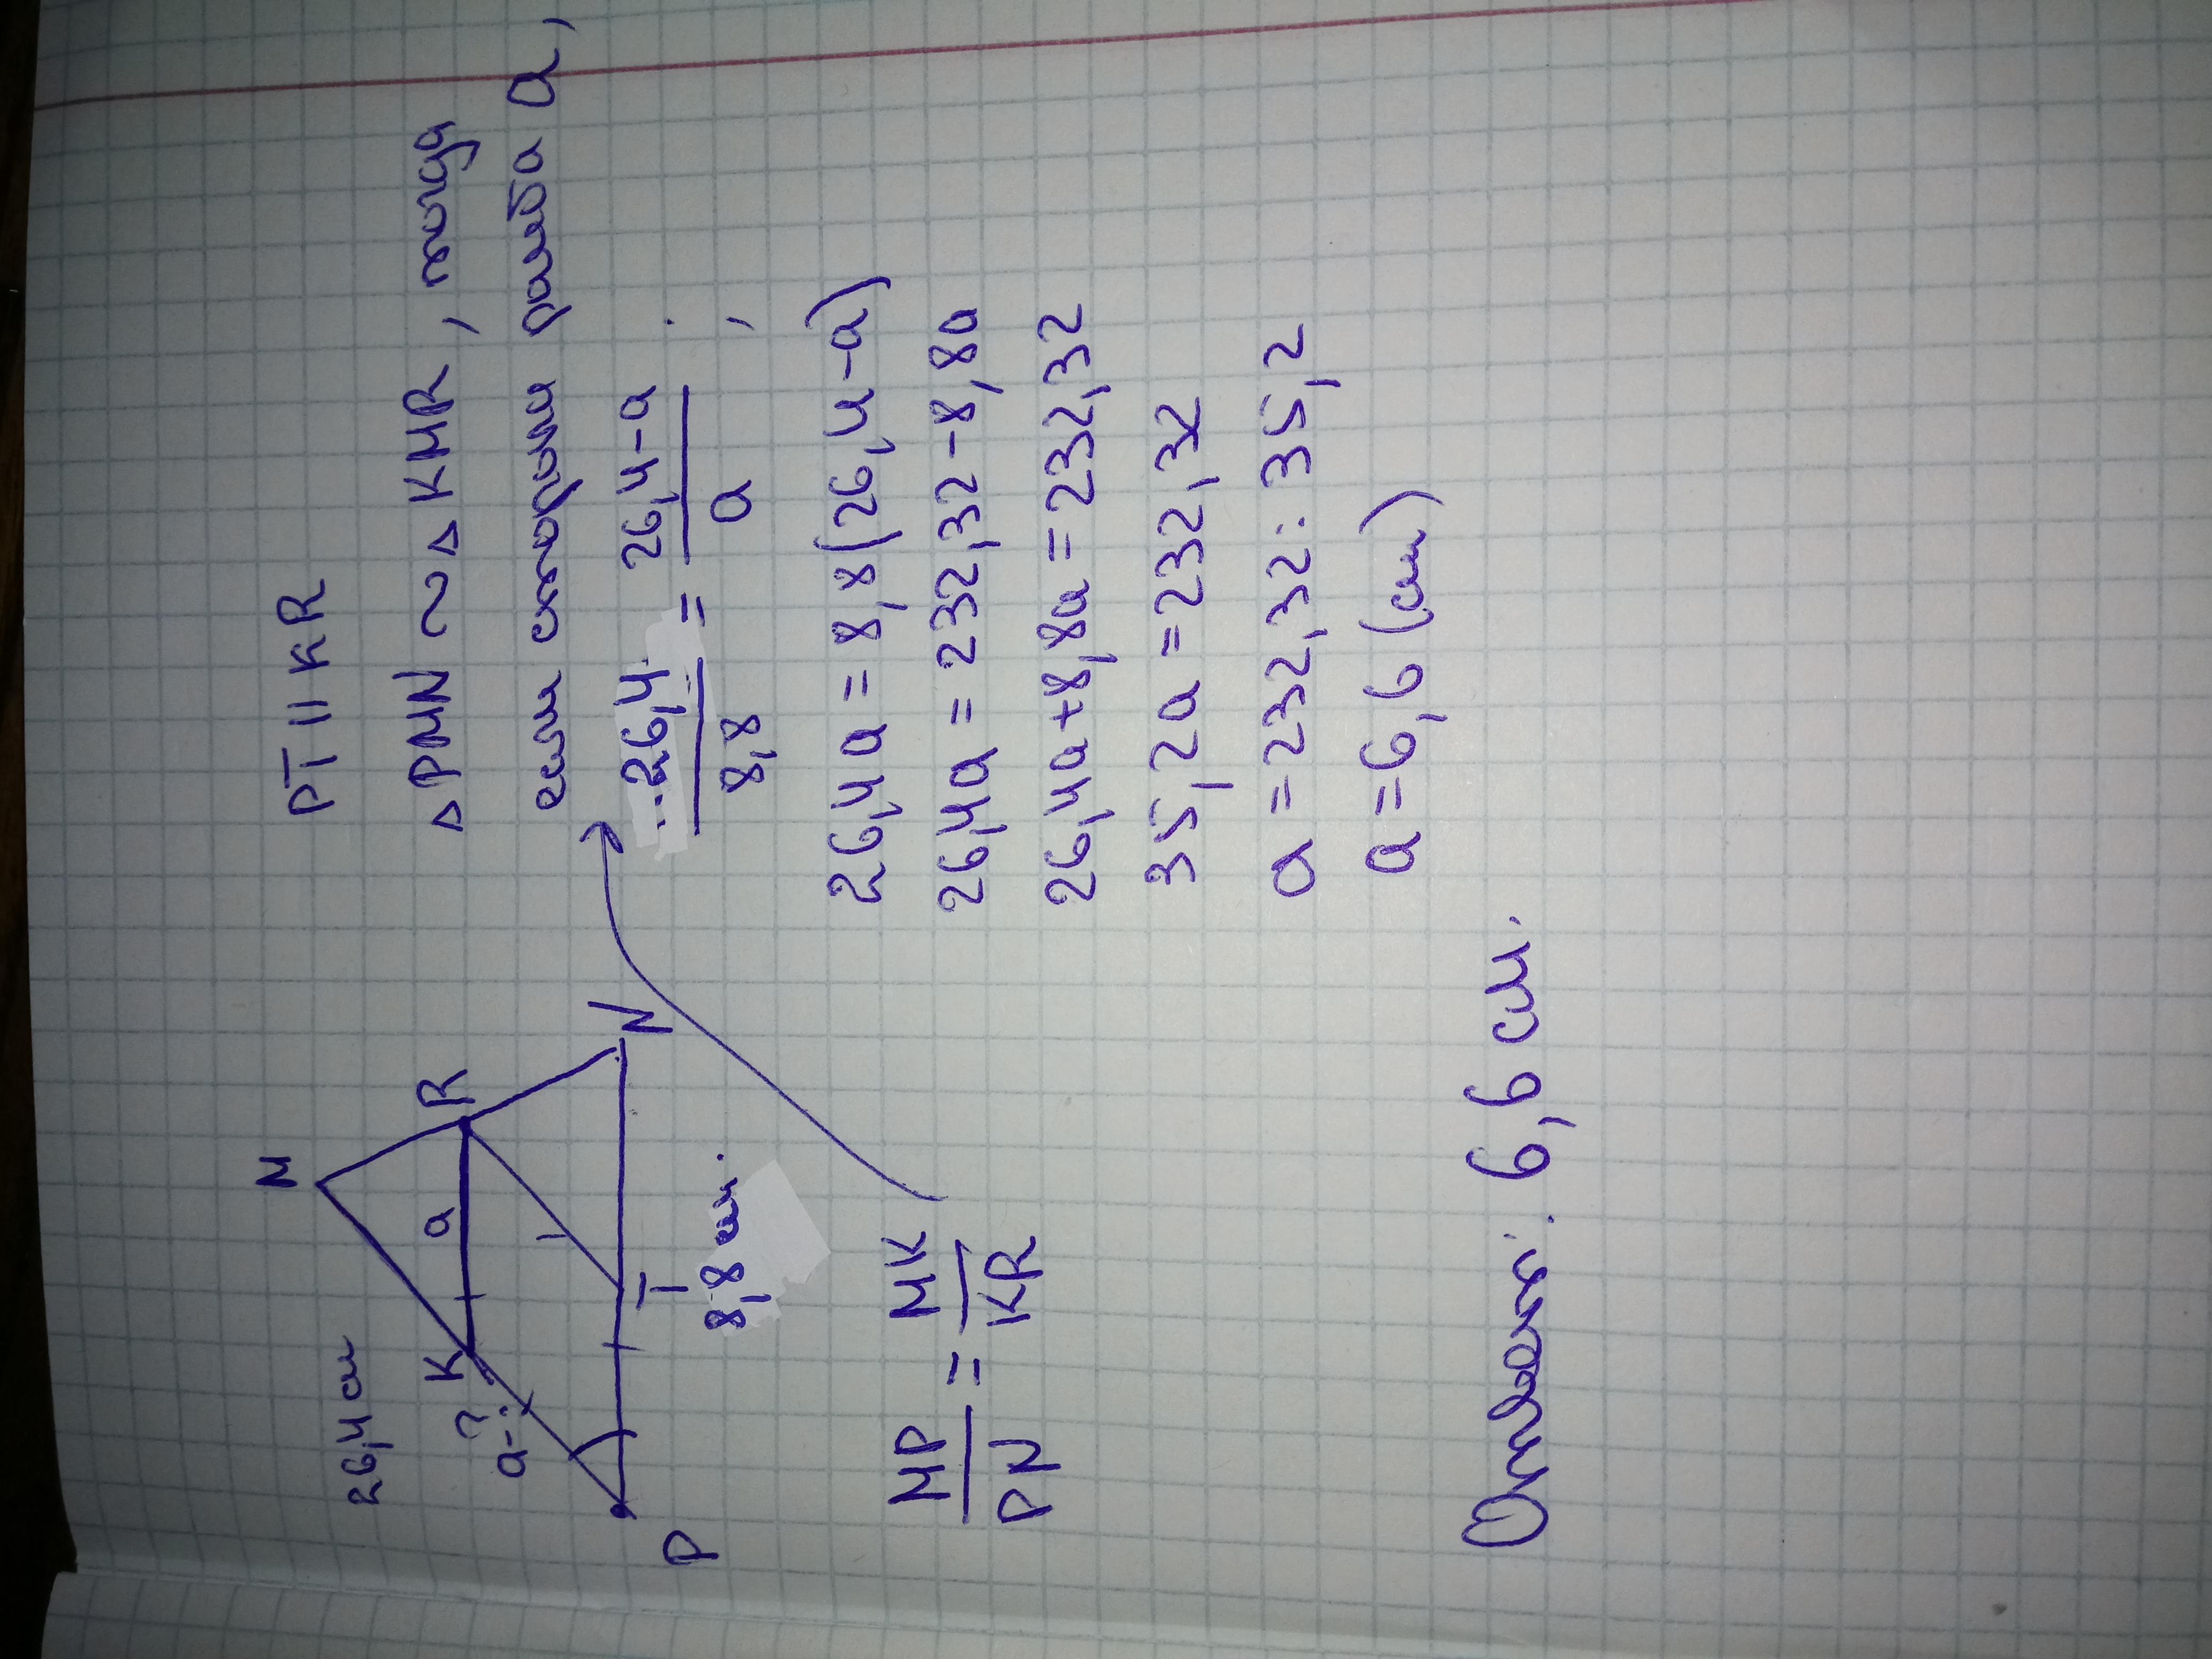 M
26,4 см
K
a
R
a-?
P
T
N
8,8 см.
MP/PN = MK/KR
PT || KR
△PMN ~ △KMR, тогда
если сторона ромба a,
..26,4/8,8 = 26,4-a/a ;
26,4a = 8,8(26,4-a)
26,4a = 232,32-8,8a
26,4a+8,8a = 232,32
35,2a = 232,32
a = 232,32 : 35,2
a = 6,6 (см)
Ответ: 6,6 см.